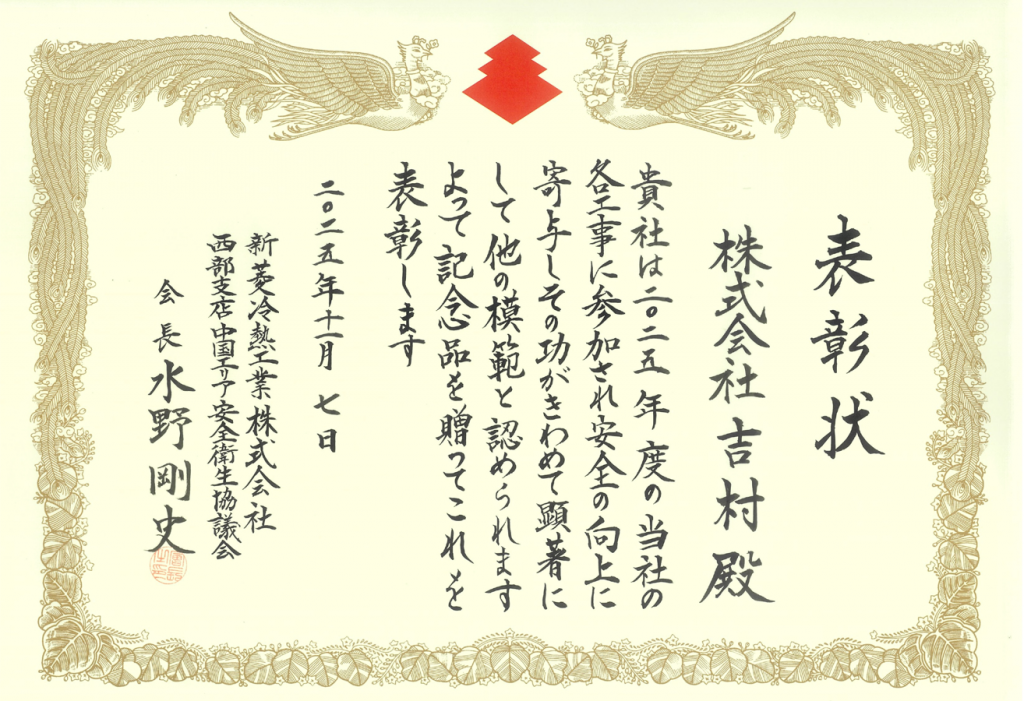 表彰状
株式会社吉村殿
貴社は二〇二五年度の当社の
各工事に参加され安全の向上に
寄与しその功がきわめて顕著に
して他の模範と認められます
よって記念品を贈ってこれを
表彰します
二〇二五年十一月七日
新菱冷熱工業株式会社
西部支店中国エリア安全衛生協議会
会長水野剛史